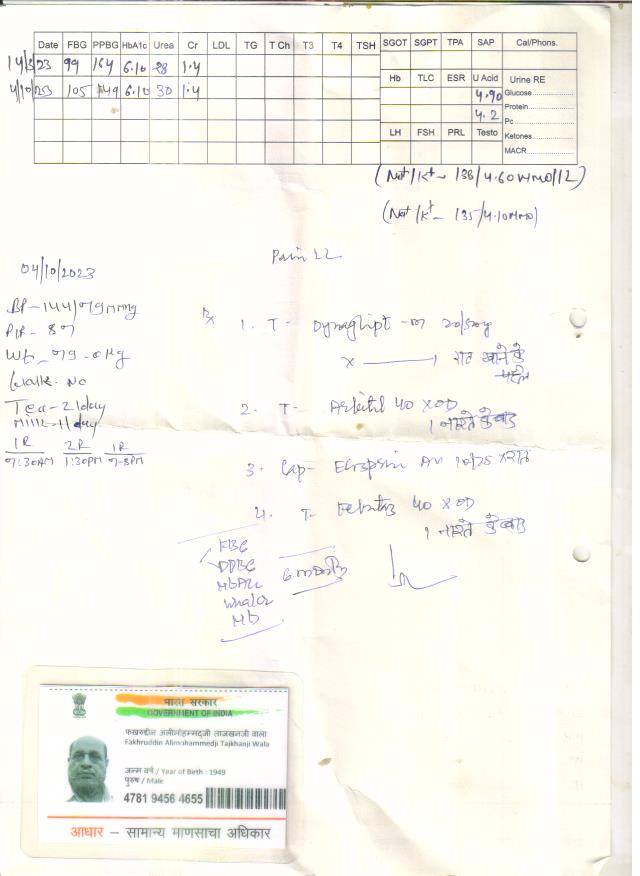 Date FBG PPBG HbA1c Urea Cr LDL TG T Ch T3 T4 TSH SGOT SGPT TPA SAP Cal/Phons.
14/3/23 99 164 6.10 28 1.4
4/10/23 105 149 6.10 30 1.4
Hb TLC ESR U Acid Urine RE
4.90 Glucose
4.2 Protein
Pc
LH FSH PRL Testo Ketones
MACR
(Na+/K+ - 138/4.60 mmol/L)
(Na+/K+ - 135/4.10 mmo)
Pain LL
04/10/2023
BP - 144/79 mmHg
P/R - 87
Wt - 79.0 kg
Walk - No
Tea - 2/day
Milk - 1/day
1R 2R 1R
7:30AM 1:30PM 7-8PM
Rx 1. T- Dynaglipt -m 20/500
x 1 रात खाने के
पहले
2. T- 40 x OD
1 नाश्ते के बाद
3. Cap- AV 10/75 x रात
4. T- Febutaz 40 x OD
1 नाश्ते के बाद
FBG
PPBG
HbA1c
Hb
भारत सरकार
GOVERNMENT OF INDIA
फखरुद्दीन अलीमोहम्मदजी ताजखनजी वाला
Fakhruddin Alimohammedji Tajkhanji Wala
जन्म वर्ष / Year of Birth : 1949
पुरुष / Male
4781 9456 4655
आधार – सामान्य माणसाचा अधिकार